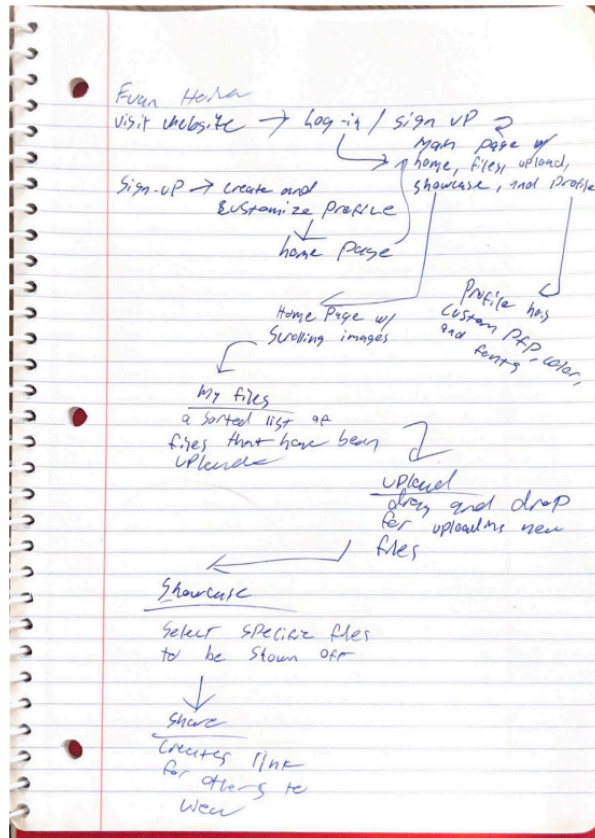 Evan
visit website → log-in / sign up
Main page w/
home, files, upload,
showcase, and profile
Sign-up → create and
customize profile
home page
Profile has
custom pfp, color,
and fonts
Home Page w/
Scrolling images
My files
a sorted list of
files that have been
upload
upload
drag and drop
for uploading new
files
Showcase
Select specific files
to be shown off
Share
Creates link
for others to
view